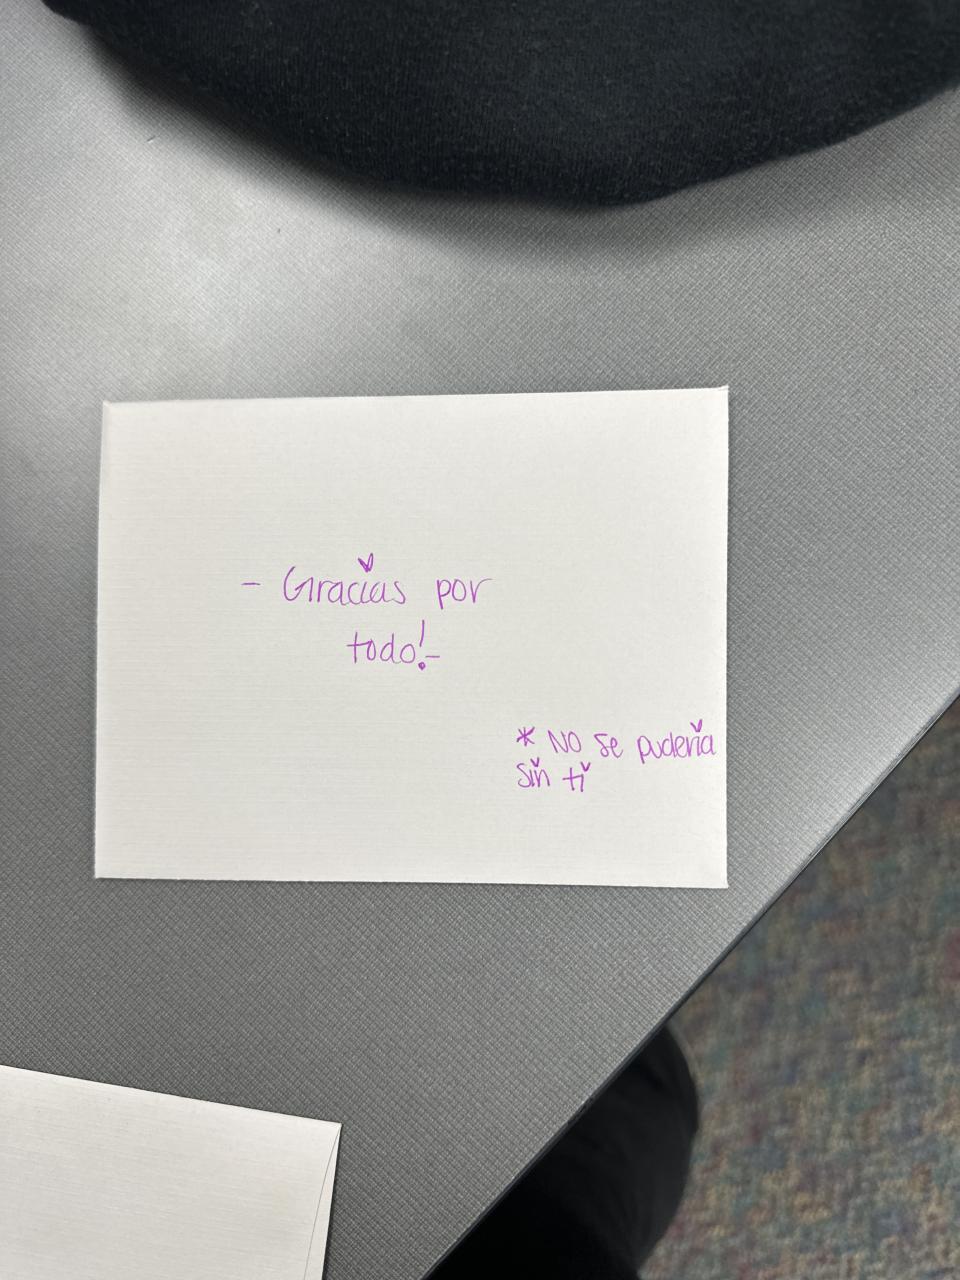 - Gracias por
todo!-
* No se puderia
sin ti